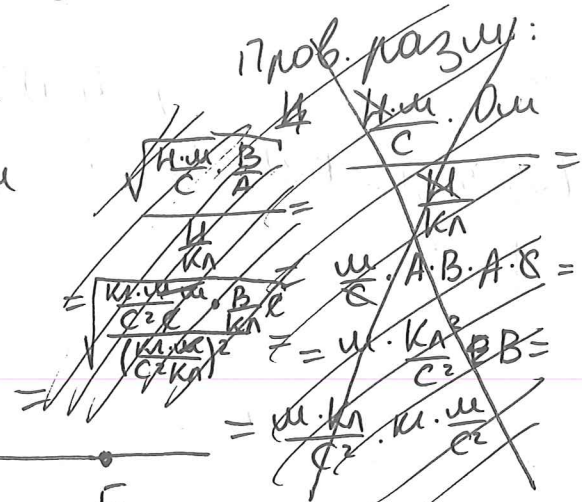 Пров. разм:
И
√(Н·м/С · В/А) / (Н/Кл) =
= √((Кл·м·м/(С²·С) · В/Кл С) / (Кл·м/(С²Кл))²) =
=
(Н·м/С · Ом) / (Н/Кл) =
= м/С · А·В·А·С =
= м · Кл²/С² В =
= м·Кл/С² · м · м/С²
Г